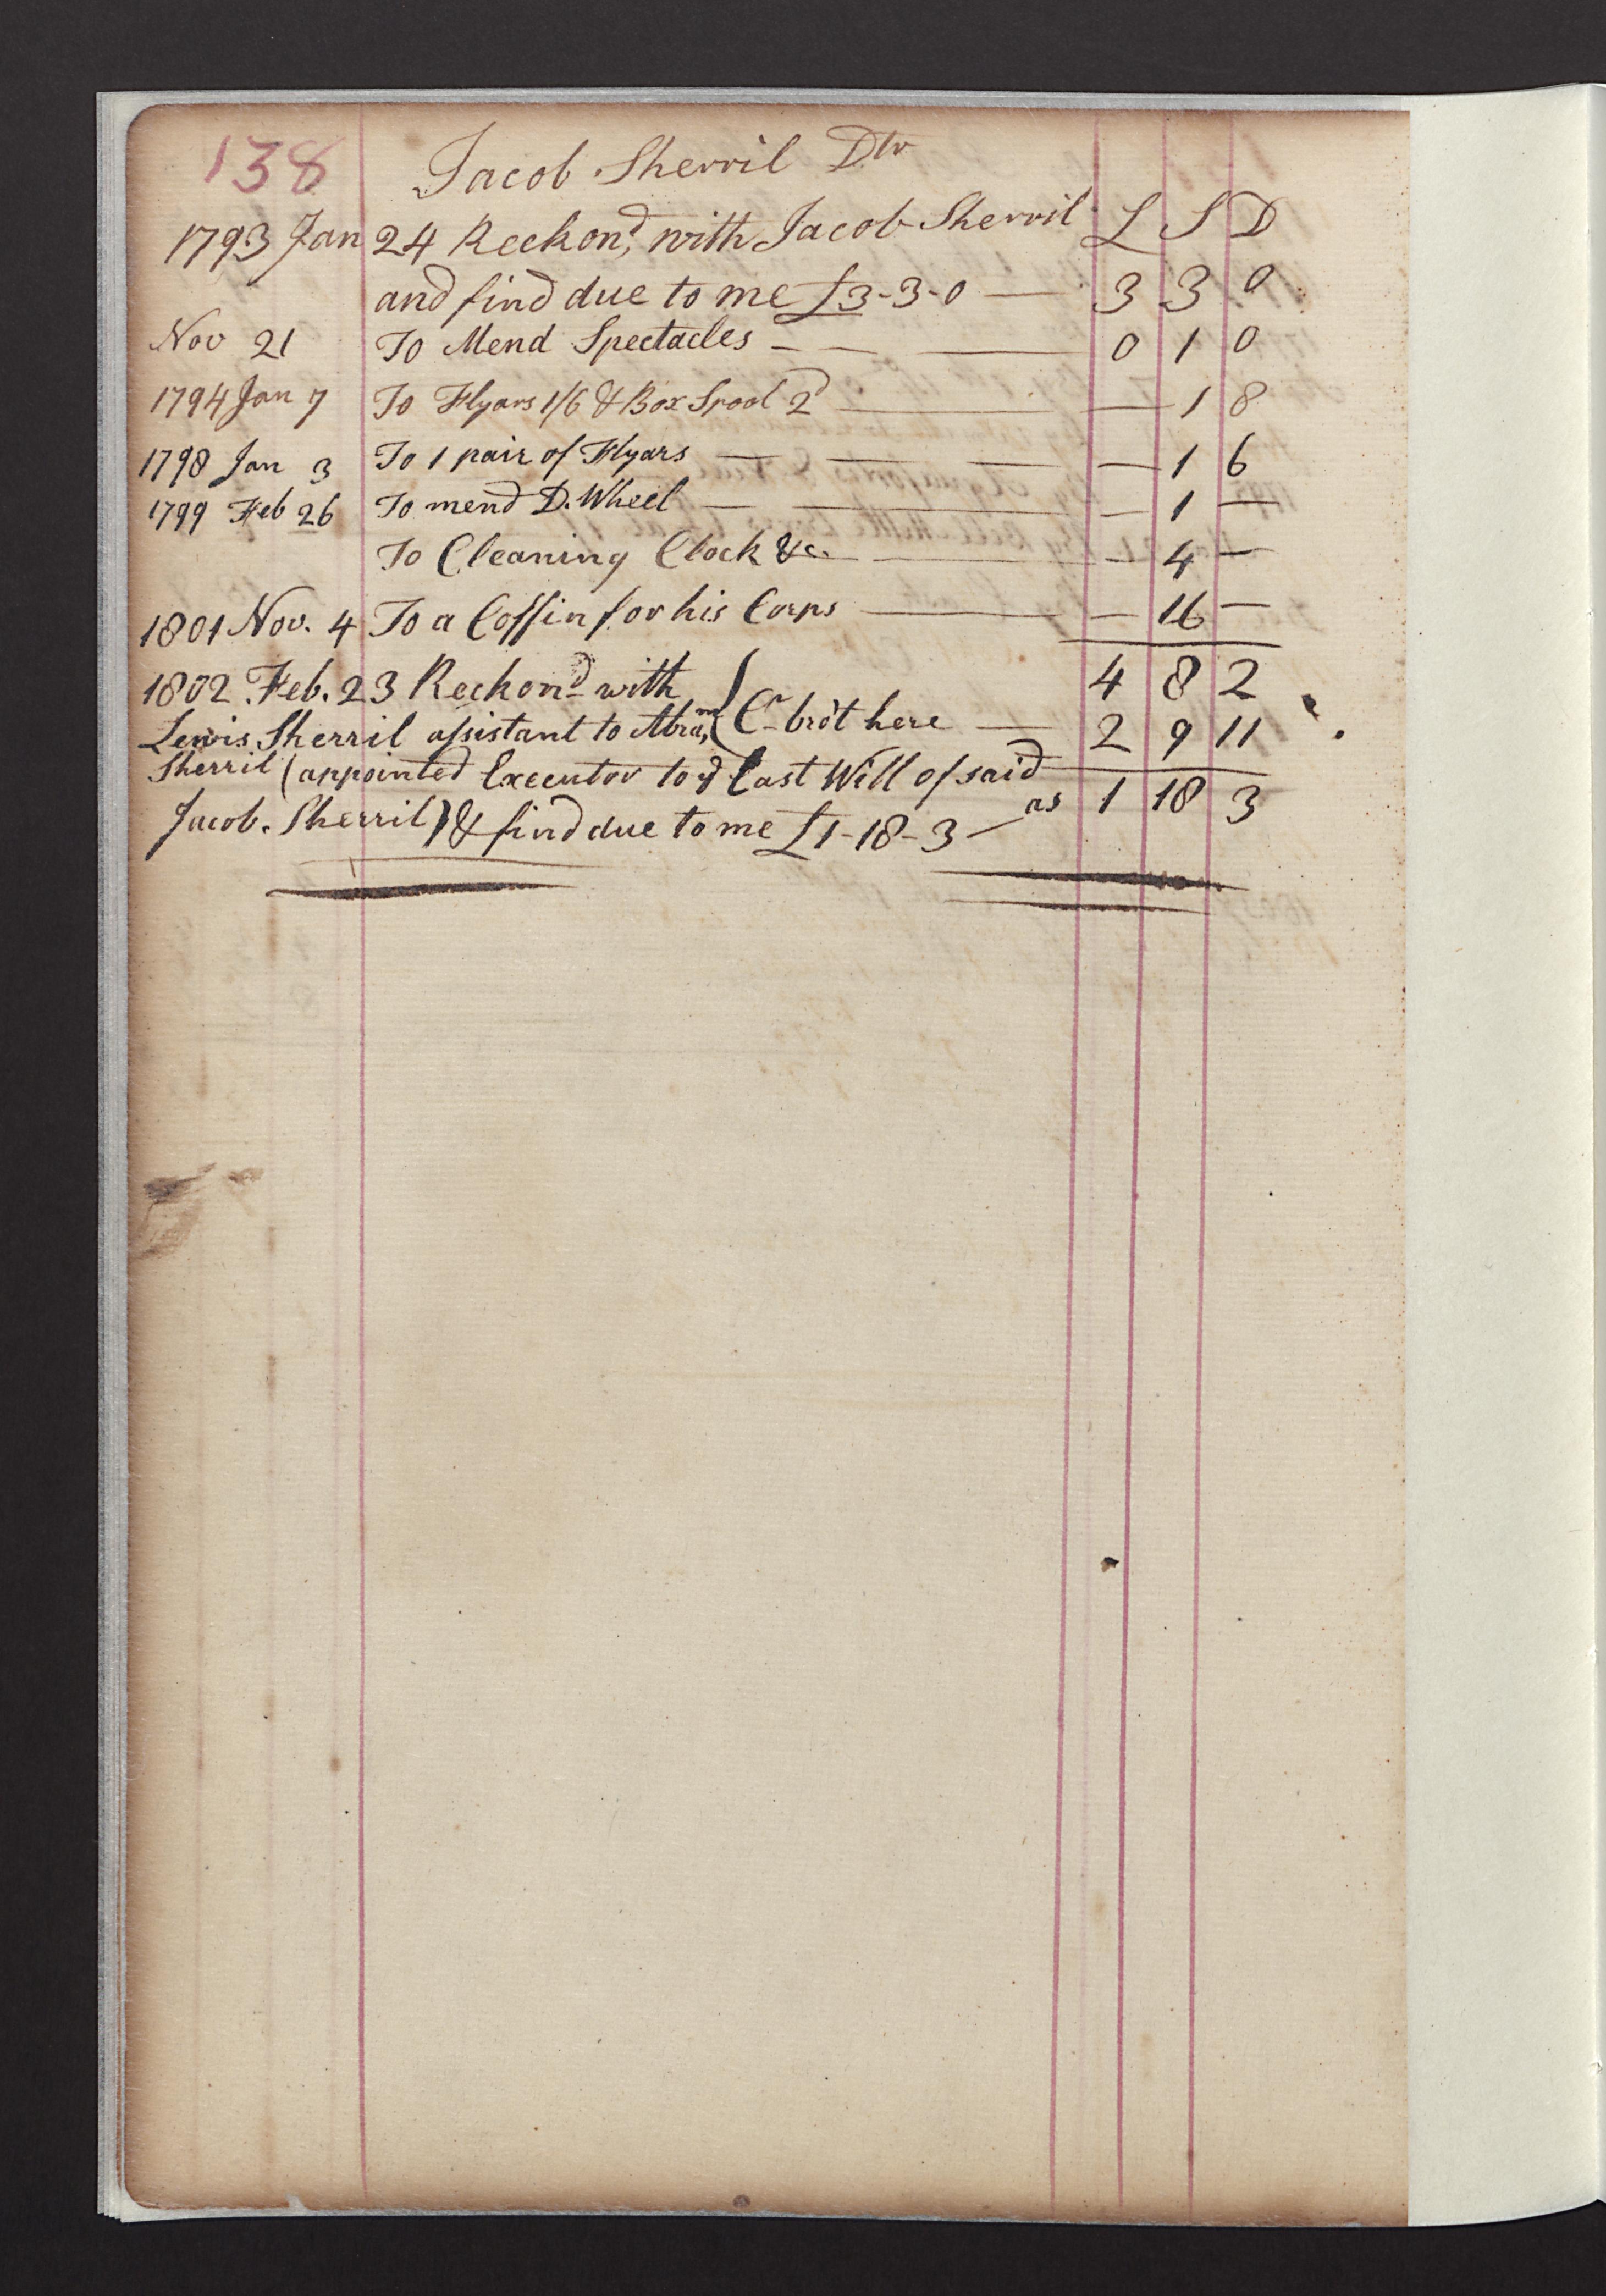 138
Jacob Sherril Dtr
1793 Jan 24 Reckond, with Jacob Sherril L S D
and find due to me £3-3-0 — 3 3 0
Nov 21 To Mend Spectacles — — — 0 1 0
1794 Jan 7 To Flyars 1/6 & Box Spool 2d — — 1 8
1798 Jan 3 To 1 pair of Flyars — — — — 1 6
1799 Feb 26 To mend D. Wheel — — — 1 —
To Cleaning Clock &c. — — 4 —
1801 Nov. 4 To a Coffin for his Corps — — 16 —
1802 Feb. 23 Reckond with 4 8 2
Lewis Sherril assistant to Abram, Cr brot here — 2 9 11
Sherril (appointed Executor to ye Last Will of said
Jacob. Sherril) & find due to me £1-18-3 — as 1 18 3